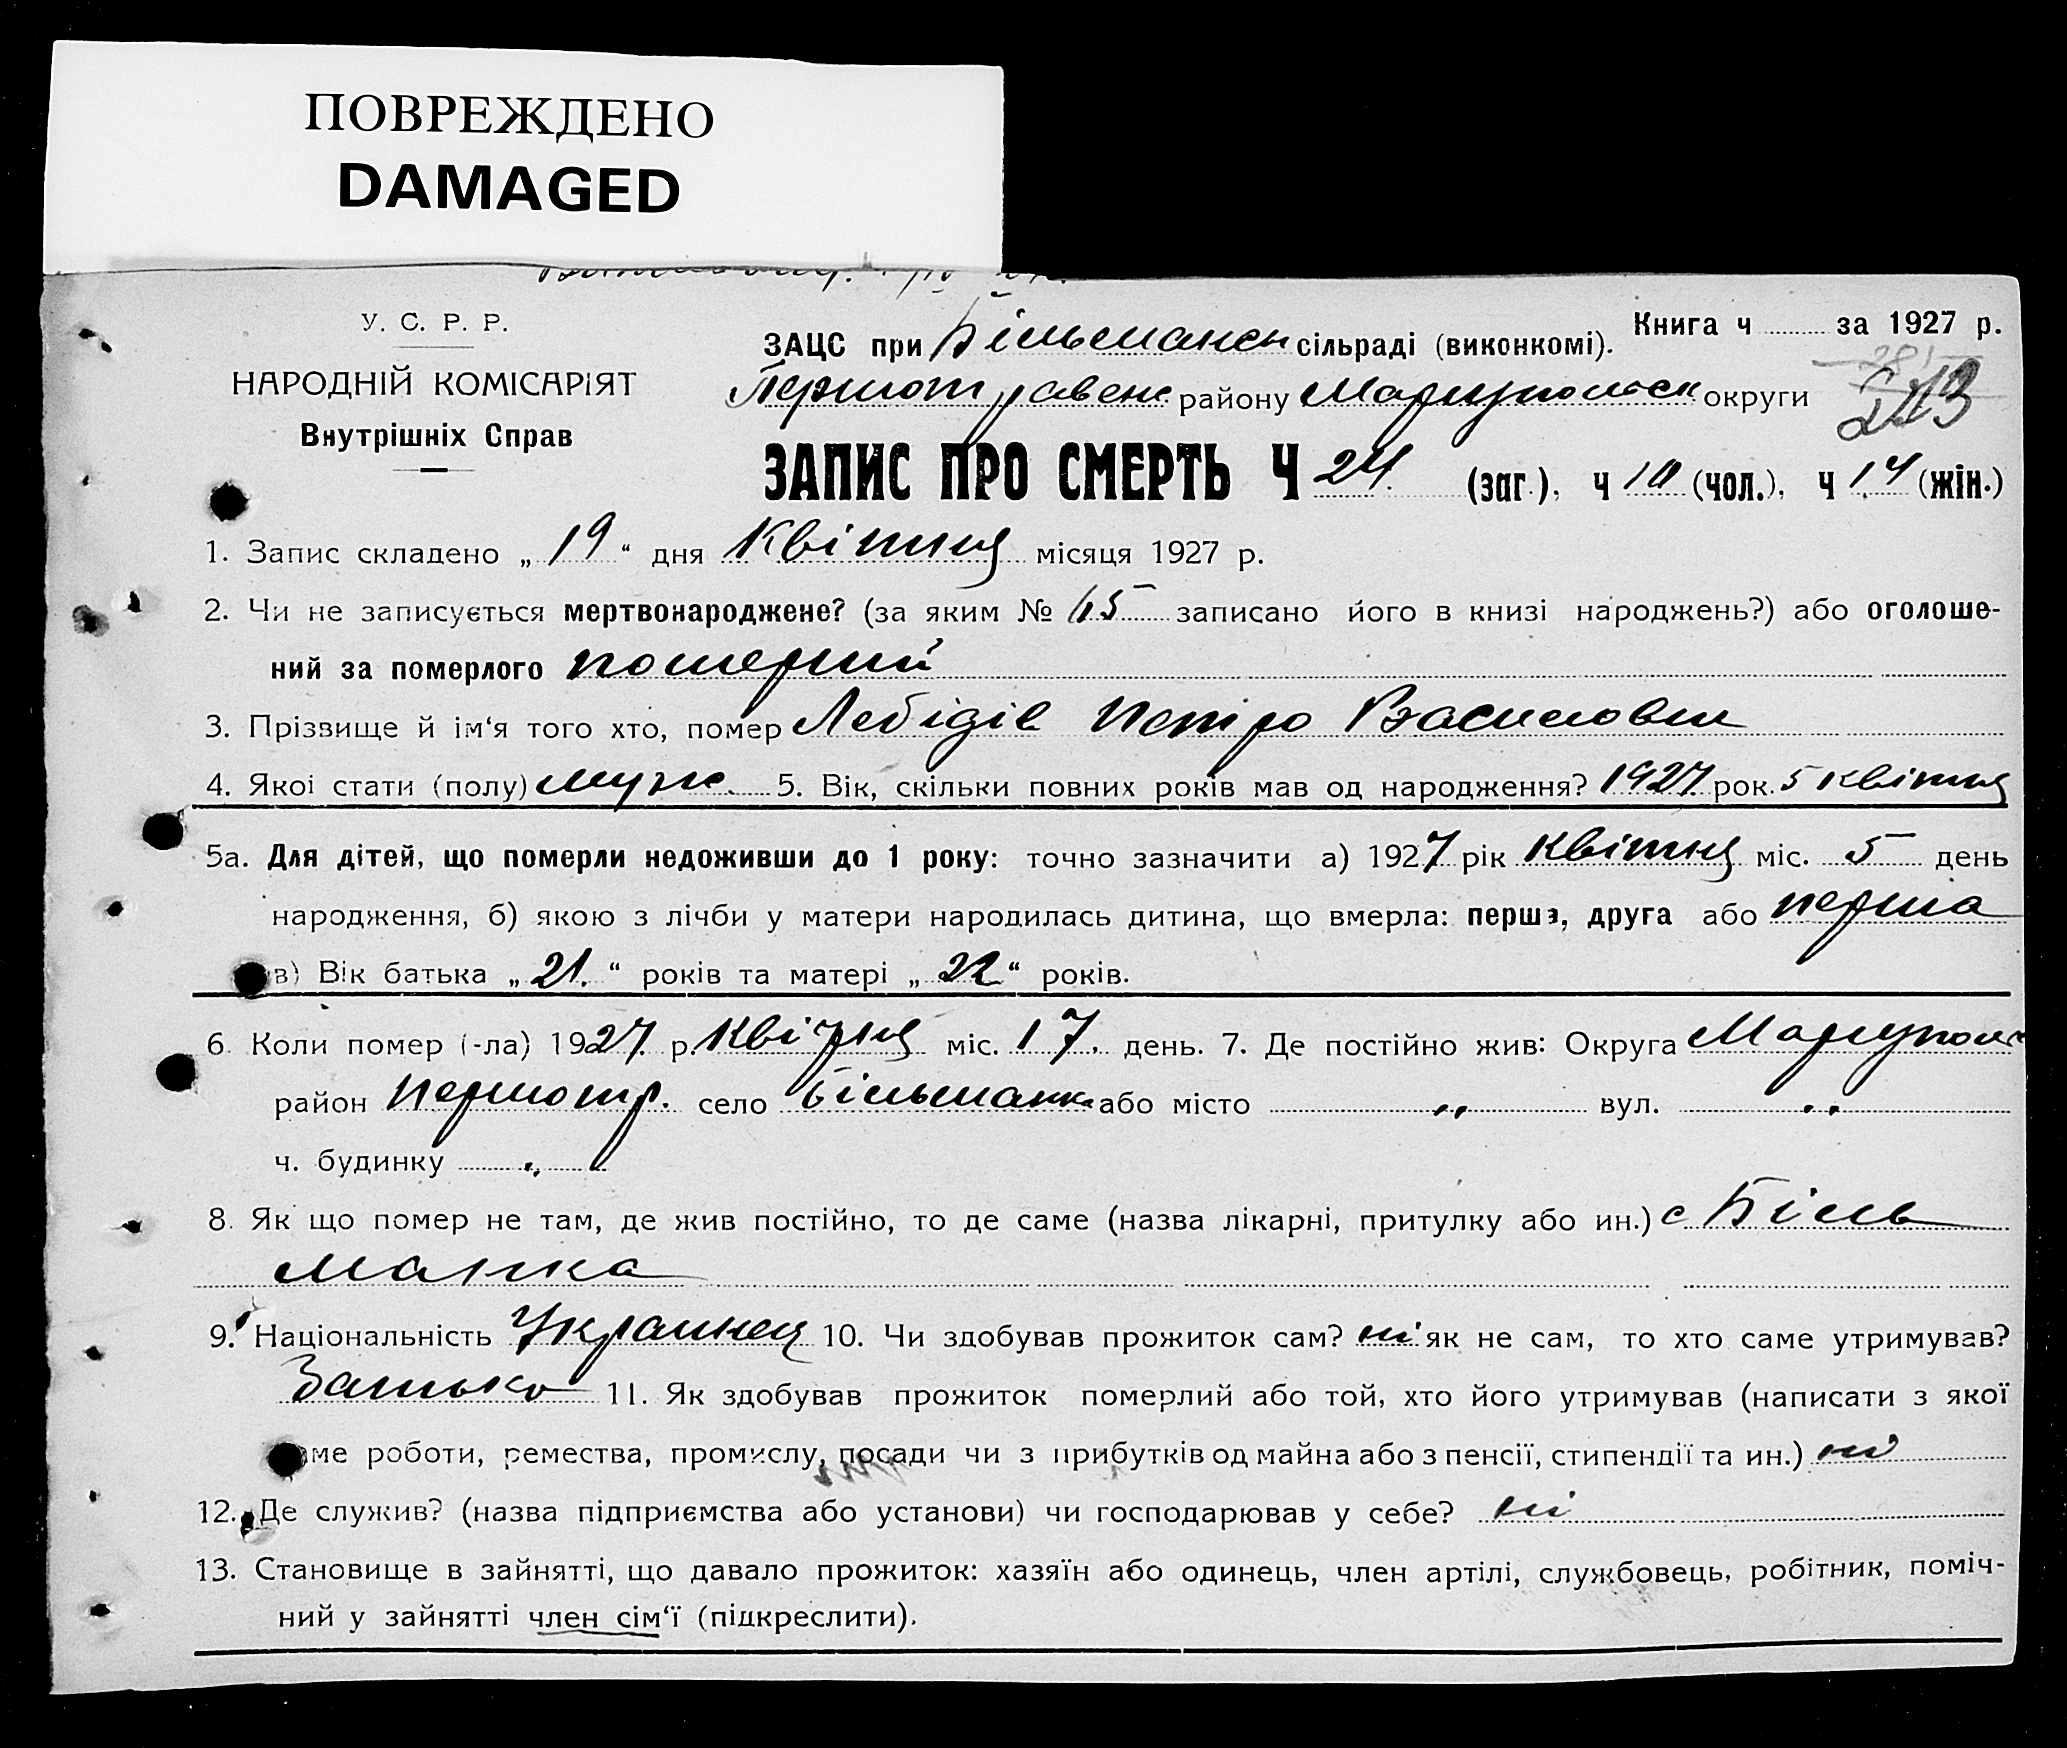 ПОВРЕЖДЕНО
DAMAGED
У. С. Р. Р.
НАРОДНІЙ КОМІСАРІЯТ
Внутрішніх Справ
Книга ч за 1927 р.
ЗАЦС при Більманськ сільраді (виконкомі).
Першотравенс. району Мариупольськ округи
ЗАПИС ПРО СМЕРТЬ Ч 24. (заг.), ч 10 (чол.), ч 14 (жін.)
1. Запис складено „ 19 “ дня Квітня місяця 1927 р.
2. Чи не записується мертвонароджене? (за яким № 65 записано його в книзі народжень?) або оголоше-
ний за померлого померший
3. Прізвище й ім‘я того хто, помер Лебідів Петро Василович
4. Якої стати (полу) муж. 5. Вік, скільки повних років мав од народження? 1927 рок. 5 квітня
5а. Для дітей, що померли недоживши до 1 року: точно зазначити а) 1927 рік Квітня міс. 5 день
народження, б) якою з лічби у матери народилась дитина, що вмерла: перша, друга або перша
в) Вік батька „ 21. “ років та матері „ 22 “ років.
6. Коли помер (-ла) 1927. р. Квітня міс. 17. день. 7. Де постійно жив: Округа Мариуполь
район Першотр. село Більманка або місто „ вул. „
ч. будинку „
8. Як що помер не там, де жив постійно, то де саме (назва лікарні, притулку або ин.) с Біль
манка
9. Національність Украинец 10. Чи здобував прожиток сам? ні як не сам, то хто саме утримував?
Батько 11. Як здобував прожиток померлий або той, хто його утримував (написати з якої
ме роботи, ремества, промислу, посади чи з прибутків од майна або з пенсії, стипендії та ин.) ні
12. Де служив? (назва підприємства або установи) чи господарював у себе? ні
13. Становище в зайнятті, що давало прожиток: хазяїн або одинець, член артілі, службовець, робітник, поміч-
ний у зайнятті член сім‘ї (підкреслити).